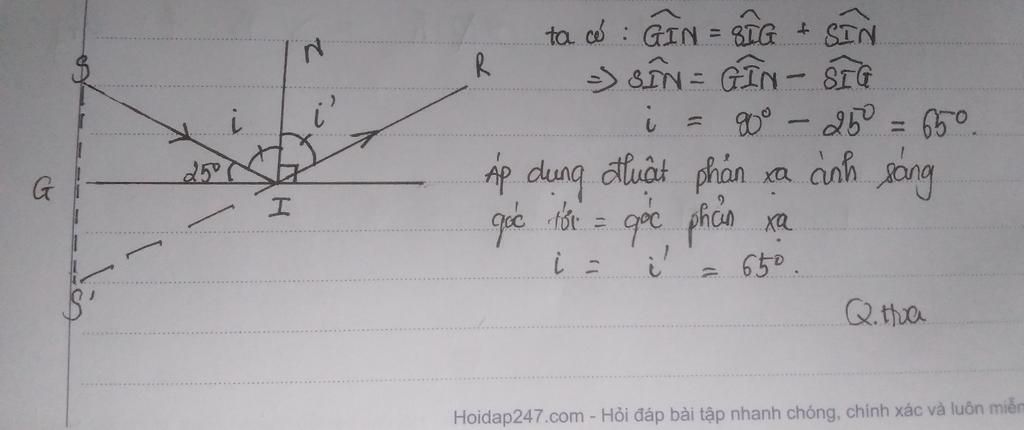 S
N
R
i
i'
25°
G
I
S'
ta có : GÎN = SÎG + SÎN
=> SÎN = GÎN - SÎG
i = 90° - 25° = 65°.
Áp dụng đluật phản xạ ánh sáng
góc tới = góc phản xạ
i = i' = 65°.
Q.Hoa
Hoidap247.com - Hỏi đáp bài tập nhanh chóng, chính xác và luôn miễn